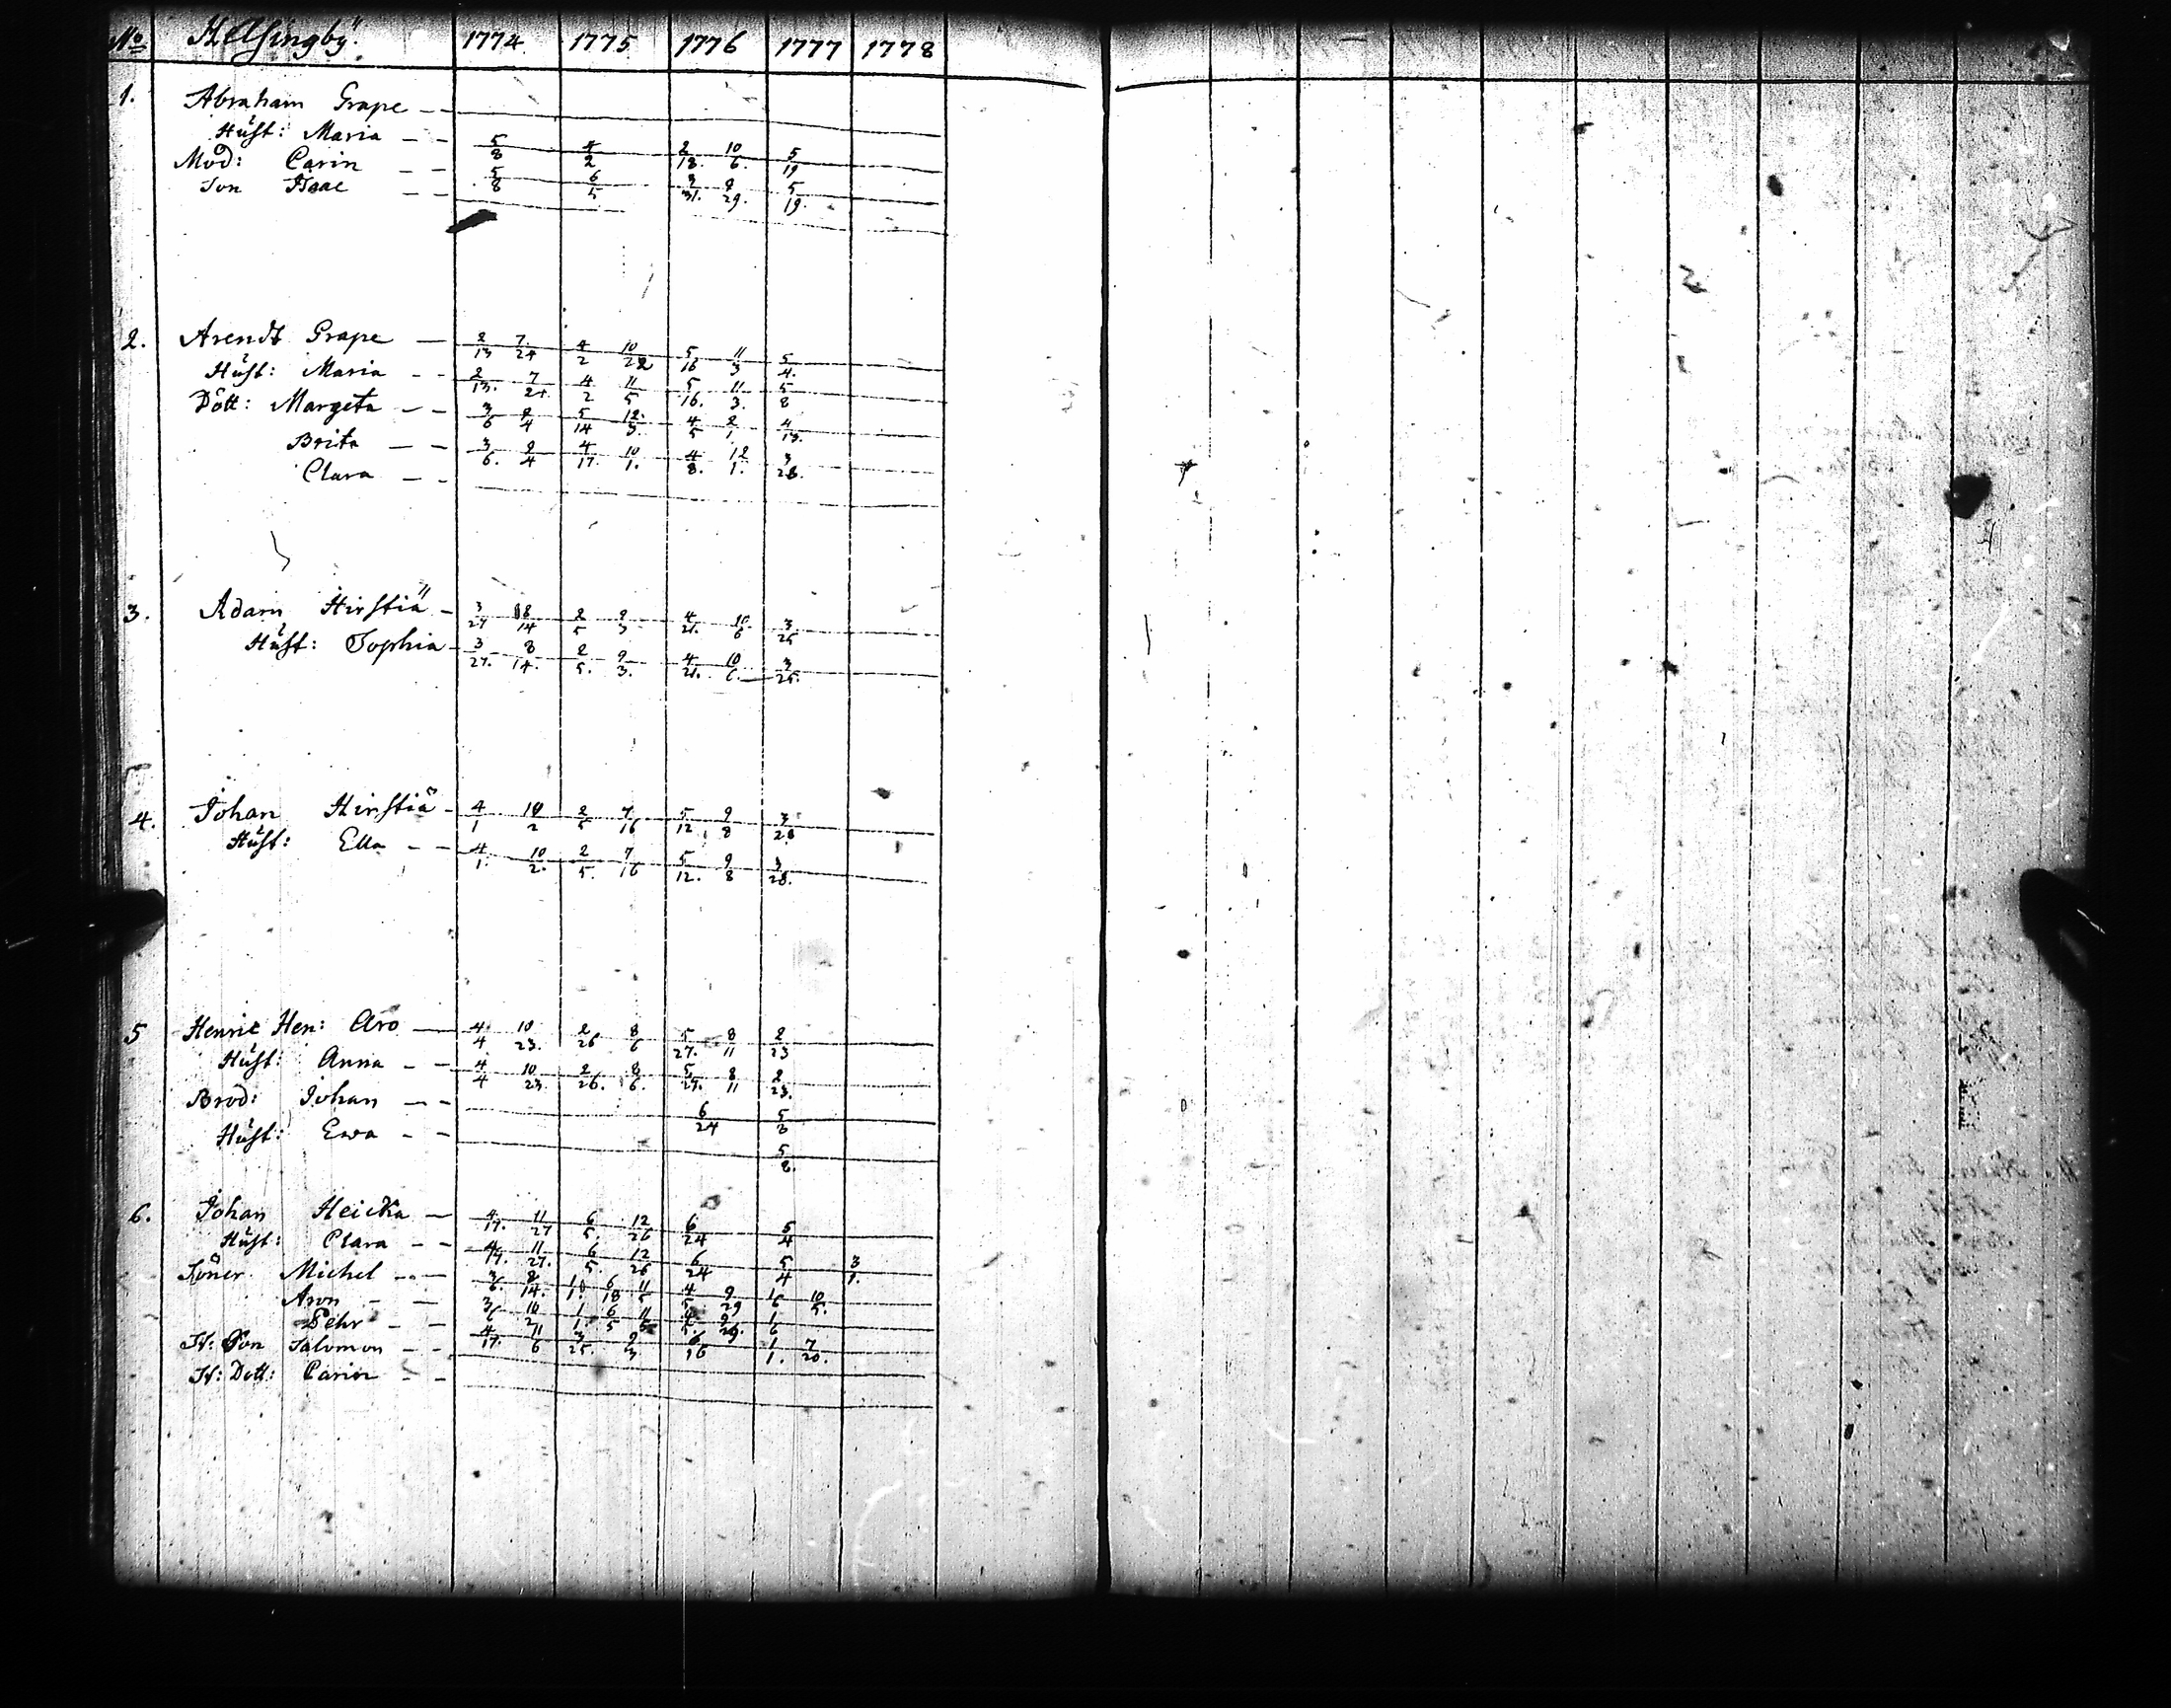 No Helsingby. 1774 1775 1776 1777 1778
1. Abraham Grape
Hust: Maria 5/8 4/2 2/18. 10/6. 5/19
Mod: Carin 5/8 6/5 3/31. 9/29. 5/19.
Son Isaac
2. Arendt Grape 2/13 7/24 4/2 10/22 5/16 11/3 5/4.
Hust: Maria 2/13. 7/24 4/2 11/5 5/16. 11/3. 5/8
Dött: Margeta 3/6 9/4 5/14 12/3. 4/5 2/1. 4/13.
Brita 3/6. 9/4 4/17. 10/1. 4/8. 12/1. 3/28.
Clara
3. Adam Hirstiä 3/27 8/14 2/5 9/3 4/21. 10/6 3/25
Hust: Sophia 3/27. 8/14. 2/5. 9/3. 4/21. 10/6. 3/25.
4. Johan Hirstiä 4/1 10/2 2/5 7/16 5/12 9/8 3/28
Hust: Ella 4/1. 10/2. 2/5. 7/16 5/12. 9/8 3/28.
5 Henric Hen: Aro 4/4 10/23. 2/26 8/6 5/27. 8/11 2/23
Hust: Anna 4/4 10/23 2/26. 8/6. 5/27. 8/11 2/23.
Brod: Johan 6/24 5/8
Hust: Ewa 5/8.
6. Johan Heicka 4/17. 11/27 6/5. 12/26 6/24 5/4
Hust: Clara 4/17. 11/27. 6/5. 12/26 6/24 5/4 3/1.
Söner Michel 3/6. 8/14. 1/1. 6/18 11/5 4/5 9/29 1/6 10/5.
Aron 3/6 10/2 1/1. 6/5 11/5 9/29. 1/6
Pehr 4/17. 11/6 3/25. 9/3 6/16 1/1. 7/20.
St: Son Salomon
St: Dott: Carin